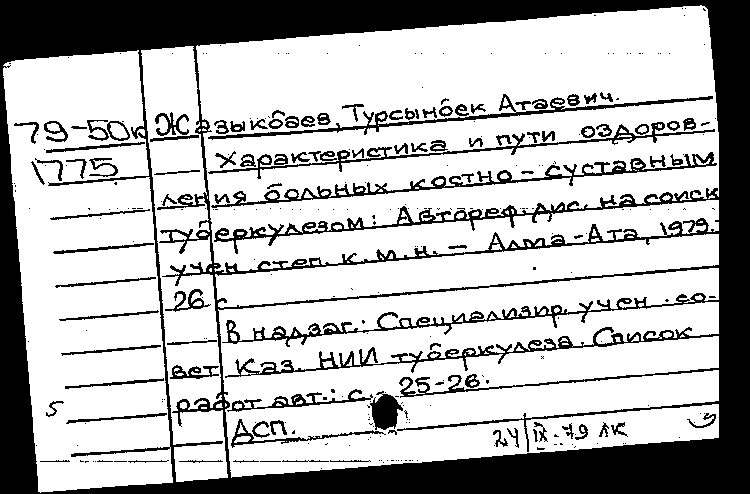 79-50к Жазыкбаев, Турсынбек Атаевич.
1775 Характеристика и пути оздоров-
ления больных костно-суставным
туберкулезом: Автореф. дис. на соиск
учен. степ. к.м.н. - Алма-Ата, 1979.
26 с.
В надзаг.: Специализир. учен. со-
вет Каз. НИИ туберкулеза. Список
работ авт.: с. 25-26.
5
ДСП.
24/IX-79 ЛК